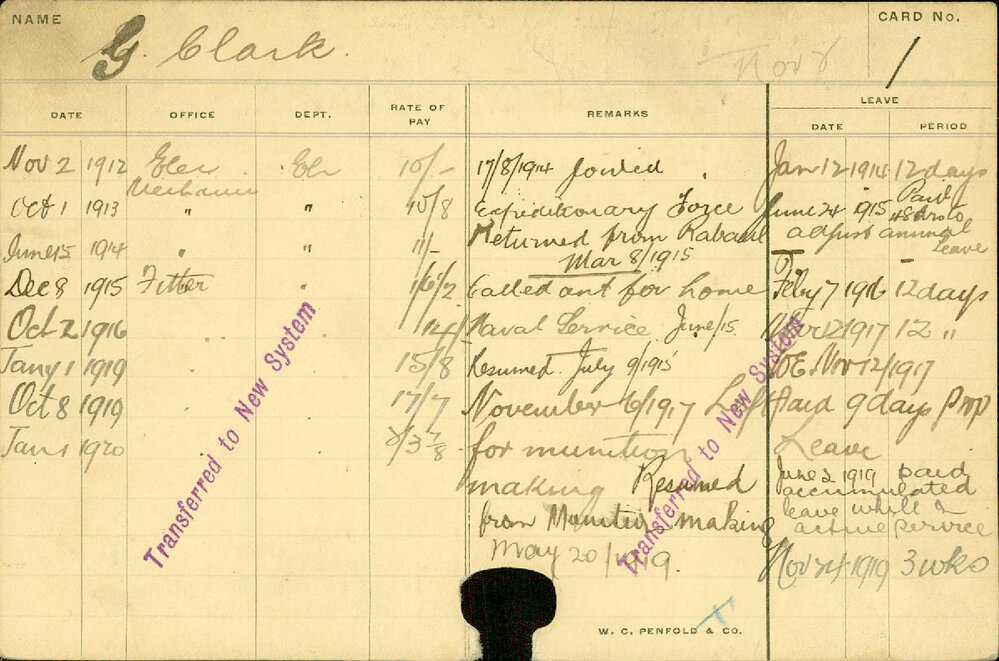 NAME
CARD No.
G. Clark.
Nov 8
1
DATE
OFFICE
DEPT.
RATE OF PAY
REMARKS
LEAVE
DATE
PERIOD
Nov 2 1912 Elec Mechanic El 10/-
Oct 1 1913 " " 10/8
June 15 1914 " " 11/-
Dec 8 1915 Fitter
Oct 2 1916
Jany 1 1919 15/8
Oct 8 1919 17/7
Jan 1 1920
17/8/1914 Joined
Expeditionary Force
Returned from Rabaul
Mar 8/1915
Called out for home
Naval Service June/15.
Resumed July 9/1915
November 6/1917 Left
for munition
making Resumed
from Munition making
May 20/1919.
Jan 12 1914 12 days
June 24 1915 Paid
48 hrs to
adjust annual
leave
Feby 7 1916 12 days
1917 12 "
Nov 12/1917
Paid 9 days Prop
Leave
June 2 1919 paid
accumulated
leave while on
active service
Nov 24 1919 3 wks
Transferred to New System
Transferred to New System
W. C. PENFOLD & CO.